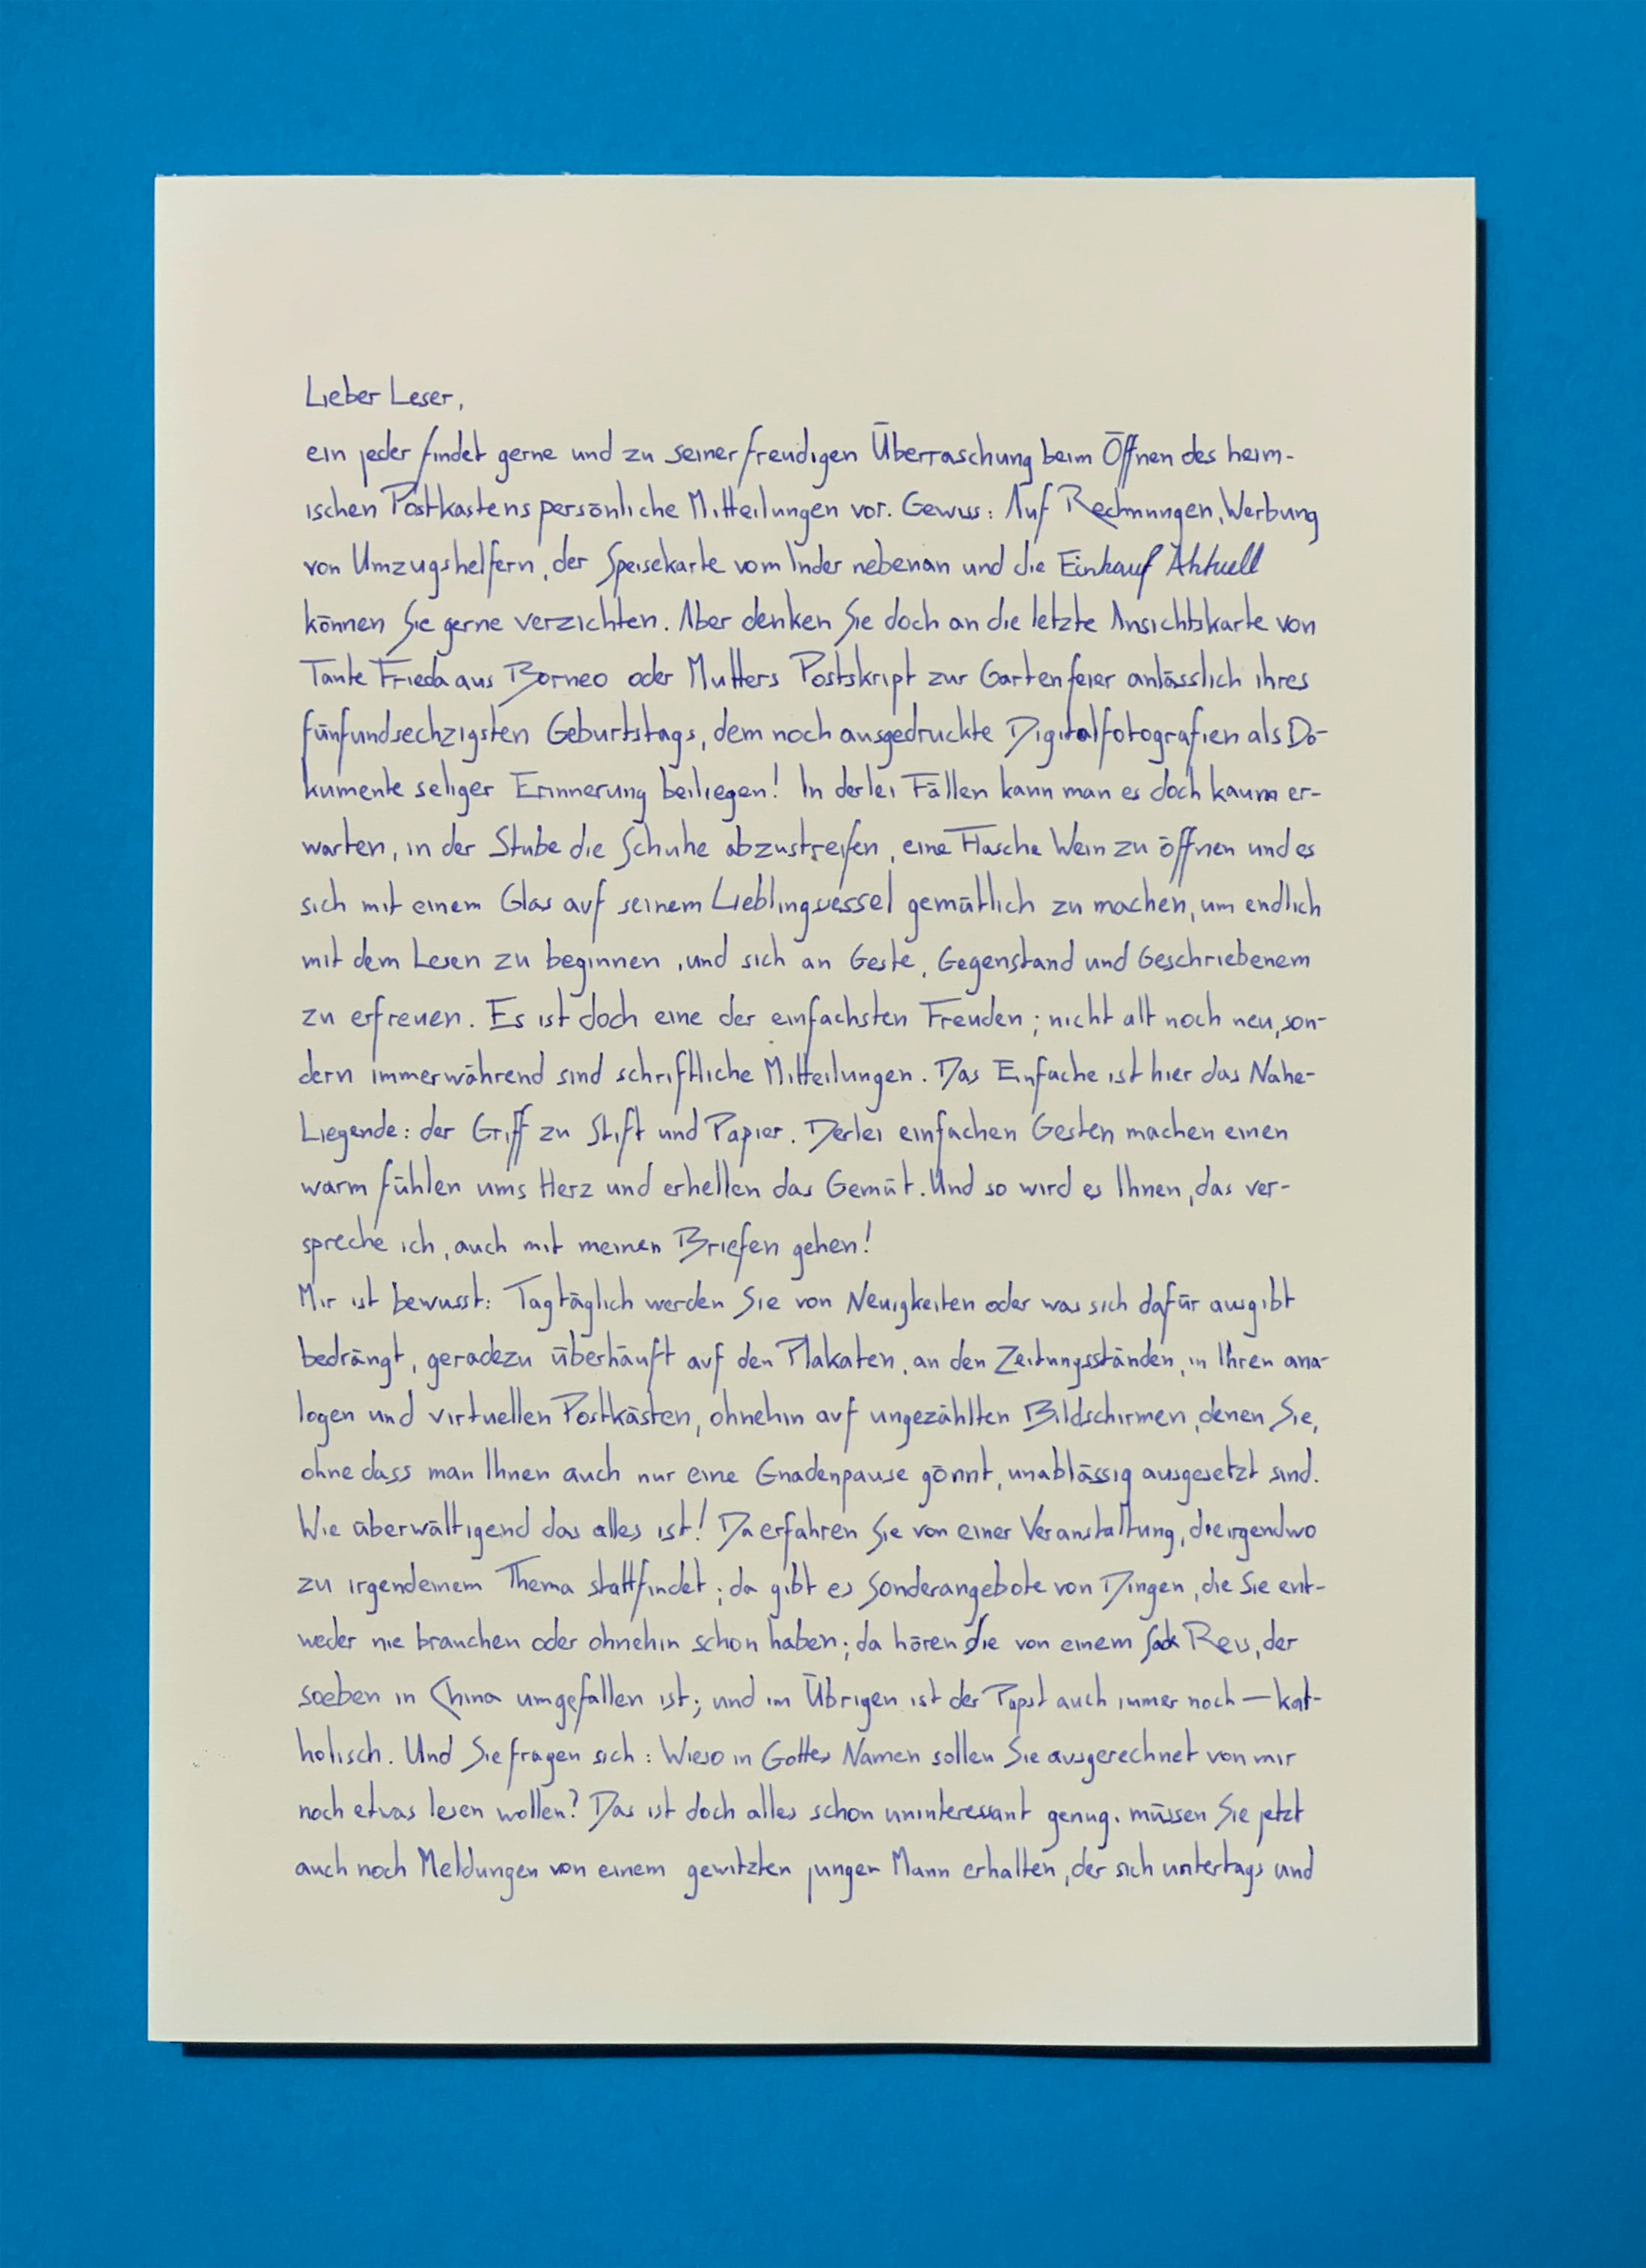 Lieber Leser,
ein jeder findet gerne und zu seiner freudigen Überraschung beim Öffnen des heim-
ischen Postkastens persönliche Mitteilungen vor. Gewiss: Auf Rechnungen, Werbung
von Umzugshelfern, der Speisekarte vom Inder nebenan und die Einkauf Aktuell
können Sie gerne verzichten. Aber denken Sie doch an die letzte Ansichtskarte von
Tante Frieda aus Borneo oder Mutters Postskript zur Gartenfeier anlässlich ihres
fünfundsechzigsten Geburtstags, dem noch ausgedruckte Digitalfotografien als Do-
kumente seliger Erinnerung beiliegen! In derlei Fällen kann man es doch kaum er-
warten, in der Stube die Schuhe abzustreifen, eine Flasche Wein zu öffnen und es
sich mit einem Glas auf seinem Lieblingssessel gemütlich zu machen, um endlich
mit dem Lesen zu beginnen, und sich an Geste, Gegenstand und Geschriebenem
zu erfreuen. Es ist doch eine der einfachsten Freuden; nicht alt noch neu, son-
dern immerwährend sind schriftliche Mitteilungen. Das Einfache ist hier das Nahe-
Liegende: der Griff zu Stift und Papier. Derlei einfachen Gesten machen einen
warm fühlen ums Herz und erhellen das Gemüt. Und so wird es Ihnen, das ver-
spreche ich, auch mit meinen Briefen gehen!
Mir ist bewusst: Tagtäglich werden Sie von Neuigkeiten oder was sich dafür ausgibt
bedrängt, geradezu überhäuft auf den Plakaten, an den Zeitungsständen, in Ihren ana-
logen und virtuellen Postkästen, ohnehin auf ungezählten Bildschirmen, denen Sie,
ohne dass man Ihnen auch nur eine Gnadenpause gönnt, unablässig ausgesetzt sind.
Wie überwältigend das alles ist! Da erfahren Sie von einer Veranstaltung, die irgendwo
zu irgendeinem Thema stattfindet; da gibt es Sonderangebote von Dingen, die Sie ent-
weder nie brauchen oder ohnehin schon haben; da hören Sie von einem Sack Reis, der
soeben in China umgefallen ist; und im Übrigen ist der Papst auch immer noch — kat-
holisch. Und Sie fragen sich: Wieso in Gottes Namen sollen Sie ausgerechnet von mir
noch etwas lesen wollen? Das ist doch alles schon uninteressant genug, müssen Sie jetzt
auch noch Meldungen von einem gewitzten jungen Mann erhalten, der sich untertags und